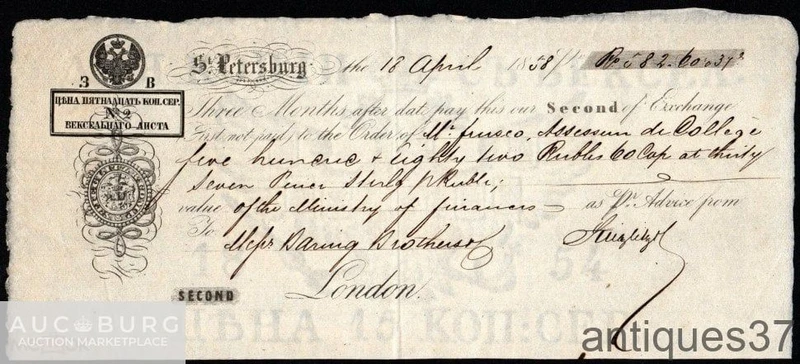 St. Petersburg the 18 April 1858 Ro 582. 60 a 37d
З В
ЦѢНА ПЯТНАДЦАТЬ КОП. СЕР.
№ 2
ВЕКСЕЛЬНАГО ЛИСТА
Three Months after date pay this our Second of Exchange
First not paid) to the Order of Mr. Assessur de Collège
five hundred & Eighty two Rubles 60 Cop at thirty
Seven Pence Sterlg p Ruble;
value of the Ministry of finances as Pr. Advice from
To
Messrs Baring Brothers & Co
Stieglitz & Co
London.
SECOND
18 54
ЦѢНА 15 КОП: СЕР:
AUCBURG
AUCTION MARKETPLACE
antiques37